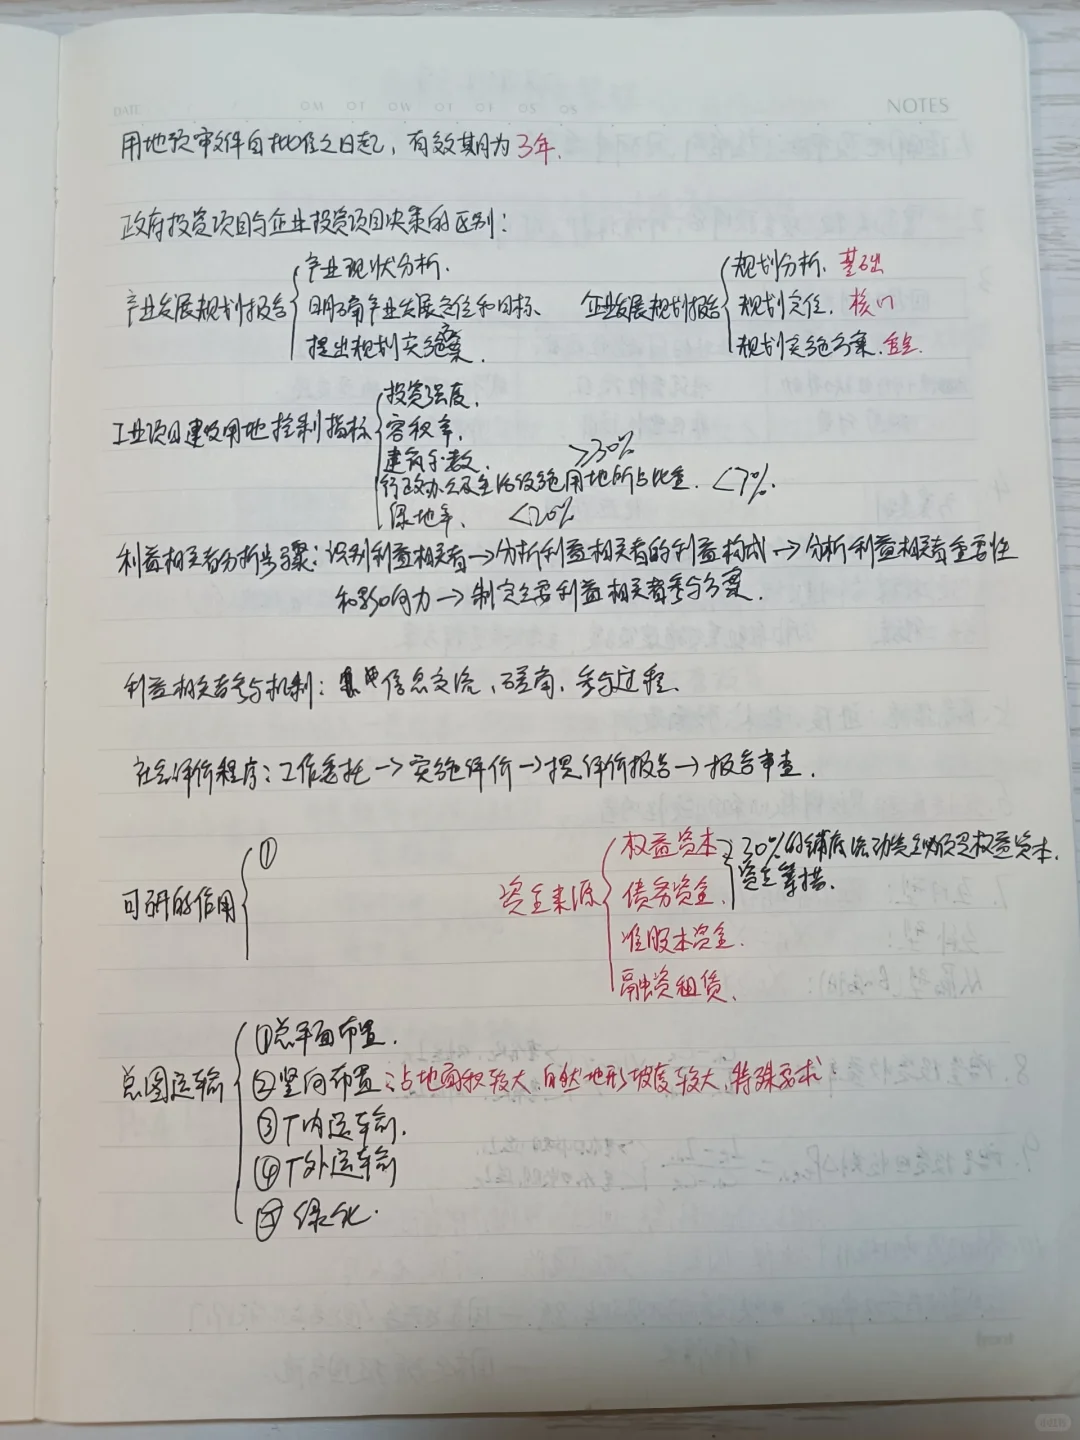 DATE
NOTES
用地预审文件自批准之日起，有效期为3年.
政府投资项目与企业投资项目决策的区别：
产业发展规划报告
产业现状分析.
明确产业发展定位和目标.
提出规划实施方案.
企业发展规划报告
规划分析. 基础
规划定位. 核心
规划实施方案.
工业项目建设用地控制指标
投资强度.
容积率.
建筑系数. ≥30%
行政办公及生活设施用地所占比重. <7%.
绿地率. <20%
利益相关者分析步骤：识别利益相关者→分析利益相关者的利益构成→分析利益相关者重要性
和影响力→制定主要利益相关者参与方案.
利益相关者参与机制：信息交流，磋商，参与过程.
社会评价程序：工作委托→实施评价→提评价报告→报告审查.
可研的作用
①
资金来源
权益资本
30%的铺底流动资金必须是权益资本.
资金筹措.
债务资金.
准股本资金.
融资租赁.
总图运输
①总平面布置.
②竖向布置：占地面积较大，自然地形坡度较大，特殊要求
③厂内运输.
④厂外运输
⑤绿化.
小红书